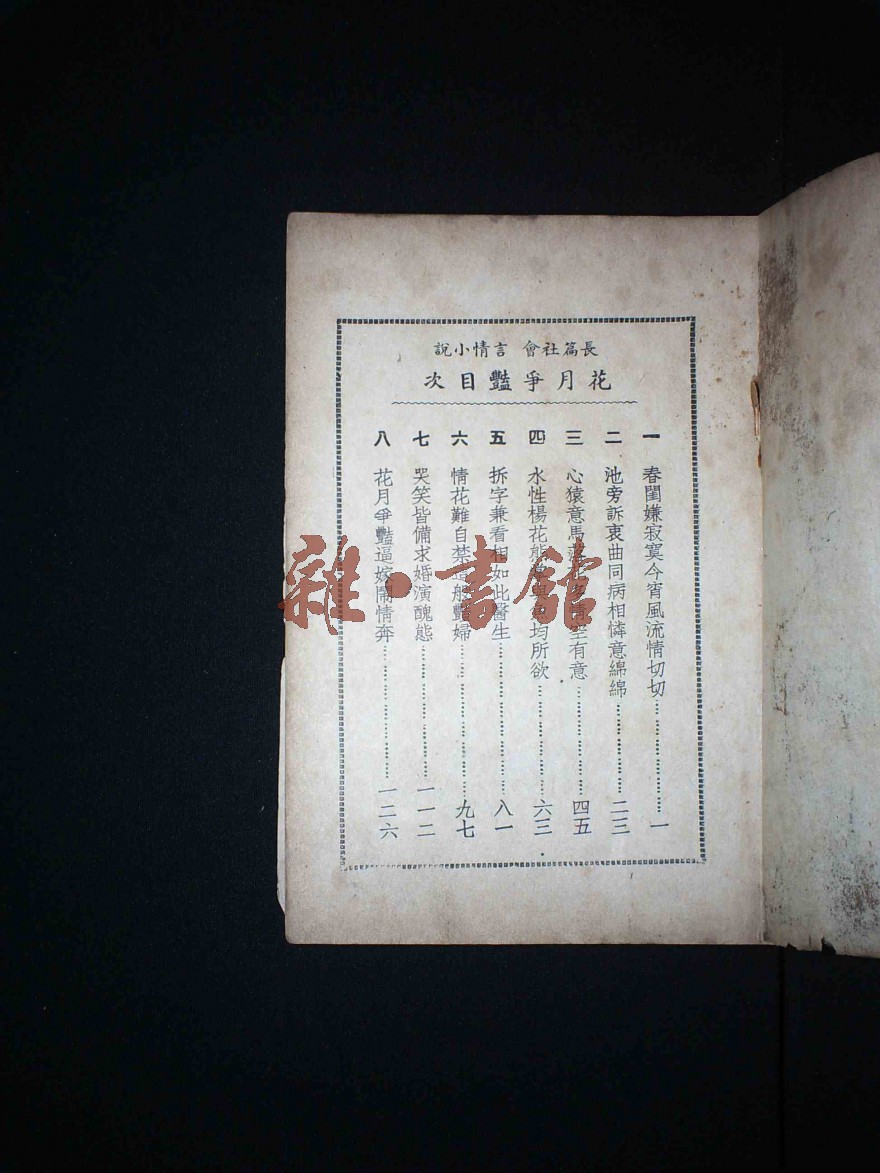 長篇社會 言情小說
花月爭豔目次
一 春閨嫌寂寞今宵風流情切切……………一
二 池旁訴衷曲同病相憐意綿綿……………二三
三 心猿意馬落花多情空有意……………四五
四 水性楊花熊掌與魚均所欲……………六三
五 拆字兼看相如此醫生……………八一
六 情花難自禁這般豔婦……………九七
七 哭笑皆備求婚演醜態……………一一二
八 花月爭豔逼嫁鬧情奔……………一二六
雜·書館